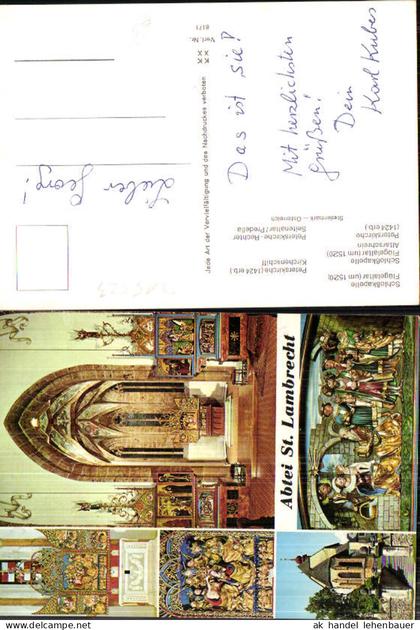 Schloßkapelle
Flügelaltar (um 1520)
Schloßkapelle
Flügelaltar (um 1520)
Altarschrein
Peterskirche
(1424 erb.)
Peterskirche (1424 erb.)
Kirchenschiff
Peterskirche-Rechter
Seitenaltar/Predella
Steiermark – Österreich
Lieber Georg!
Das ist „sie"!
Mit herzlichsten
Grüßen!
Dein
Karl Kubes
Jede Art der Vervielfältigung und des Nachdruckes verboten
Verl.-Nr. 8171
Abtei St. Lambrecht
© ak handel lehenbauer